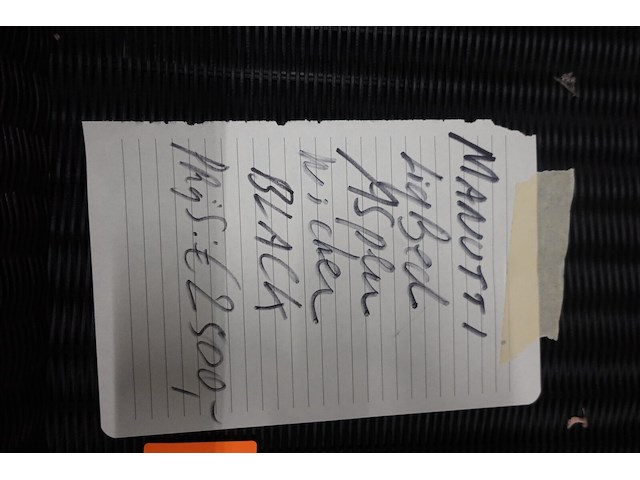 MANUTTI
LigBed
Aspen
wicker
BLACK
Prijs: € 2500,-